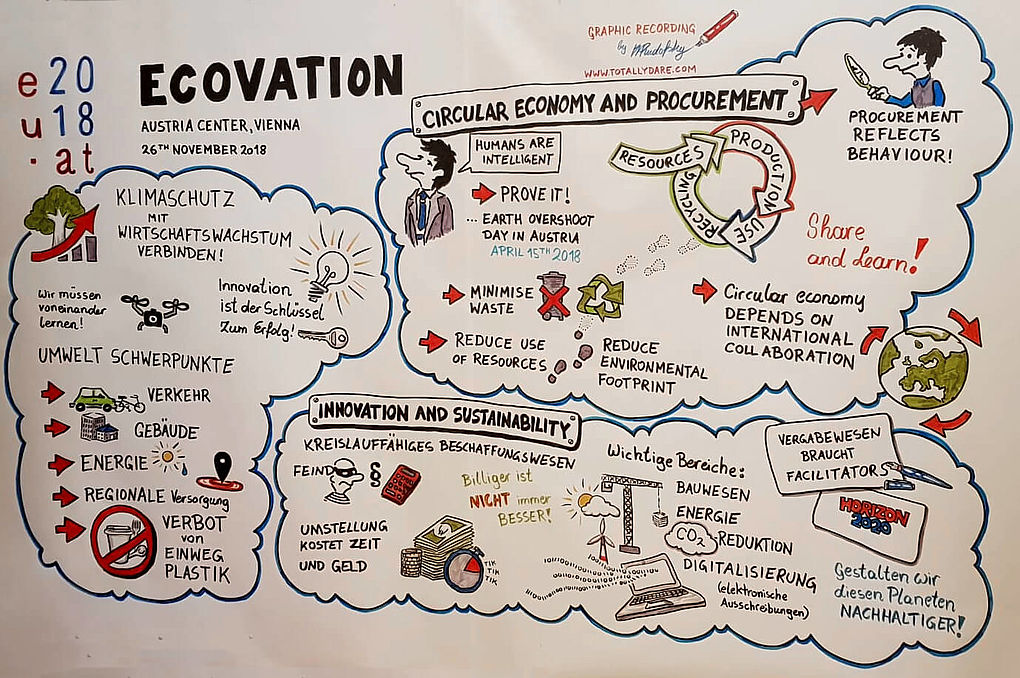 e 20
u 18
. at
ECOVATION
AUSTRIA CENTER, VIENNA
26TH NOVEMBER 2018
GRAPHIC RECORDING
by
WWW.TOTALLYDARE.COM
KLIMASCHUTZ
MIT
WIRTSCHAFTSWACHSTUM
VERBINDEN!
Wir müssen
voneinander
lernen!
Innovation
ist der Schlüssel
Zum Erfolg!
UMWELT SCHWERPUNKTE
VERKEHR
GEBÄUDE
ENERGIE
REGIONALE Versorgung
VERBOT
von
EINWEG
PLASTIK
CIRCULAR ECONOMY AND PROCUREMENT
HUMANS ARE
INTELLIGENT
PROVE IT!
... EARTH OVERSHOOT
DAY IN AUSTRIA
APRIL 15TH 2018
MINIMISE
WASTE
REDUCE USE
OF RESOURCES
REDUCE
ENVIRONMENTAL
FOOTPRINT
RESOURCES
PRODUCTION
USE
RECYCLING
PROCUREMENT
REFLECTS
BEHAVIOUR!
Share
and Learn!
Circular economy
DEPENDS ON
INTERNATIONAL
COLLABORATION
INNOVATION AND SUSTAINABILITY
KREISLAUFFÄHIGES BESCHAFFUNGSWESEN
FEIND
§
UMSTELLUNG
KOSTET ZEIT
UND GELD
TIK
TIK
TIK
Billiger ist
NICHT immer
BESSER!
Wichtige Bereiche:
BAUWESEN
ENERGIE
CO2 REDUKTION
DIGITALISIERUNG
(elektronische
Ausschreibungen)
VERGABEWESEN
BRAUCHT
FACILITATORS
HORIZON
2020
Gestalten wir
diesen Planeten
NACHHALTIGER!